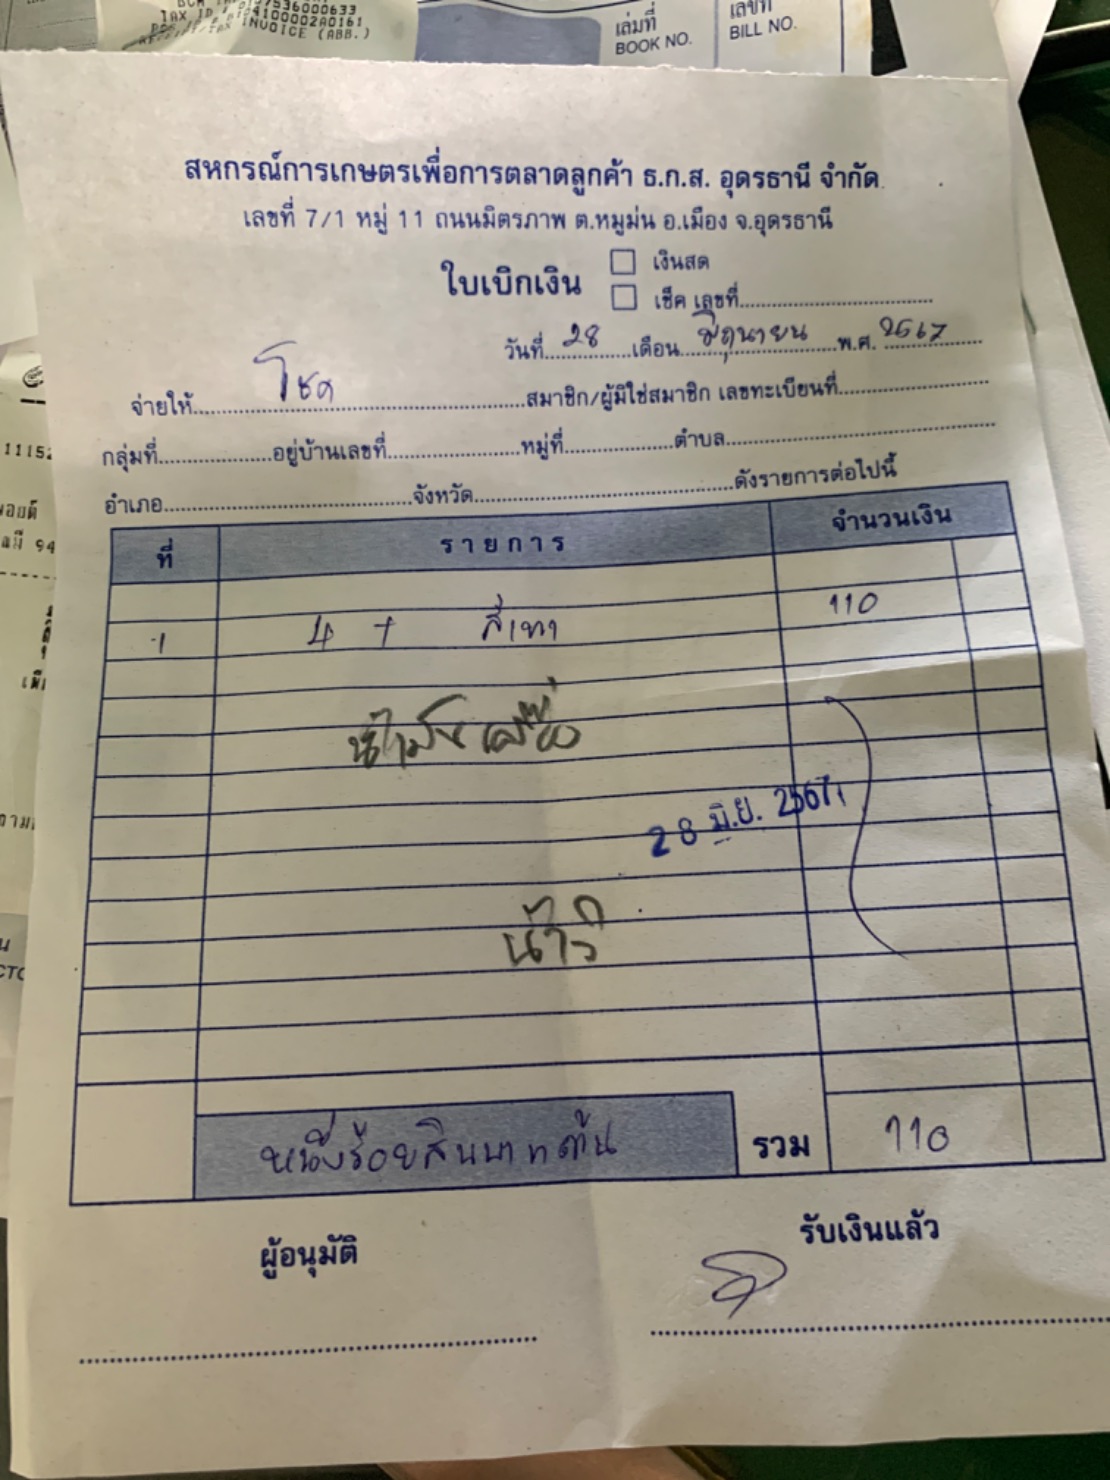 TAX INVOICE (ABB.)
เล่มที่
BOOK NO.
เลขที่
BILL NO.
สหกรณ์การเกษตรเพื่อการตลาดลูกค้า ธ.ก.ส. อุดรธานี จำกัด
เลขที่ 7/1 หมู่ 11 ถนนมิตรภาพ ต.หมูม่น อ.เมือง จ.อุดรธานี
ใบเบิกเงิน
เงินสด
เช็ค เลขที่
วันที่ 28 เดือน มิถุนายน พ.ศ. 2567
จ่ายให้ โชค สมาชิก/ผู้มิใช่สมาชิก เลขทะเบียนที่
กลุ่มที่ อยู่บ้านเลขที่ หมู่ที่ ตำบล
อำเภอ จังหวัด ดังรายการต่อไปนี้
ที่ รายการ จำนวนเงิน
1 4 T สีเทา 110
น้ำมันเครื่อง
28 มิ.ย. 2567
หนึ่งร้อยสิบบาทถ้วน รวม 110
ผู้อนุมัติ รับเงินแล้ว